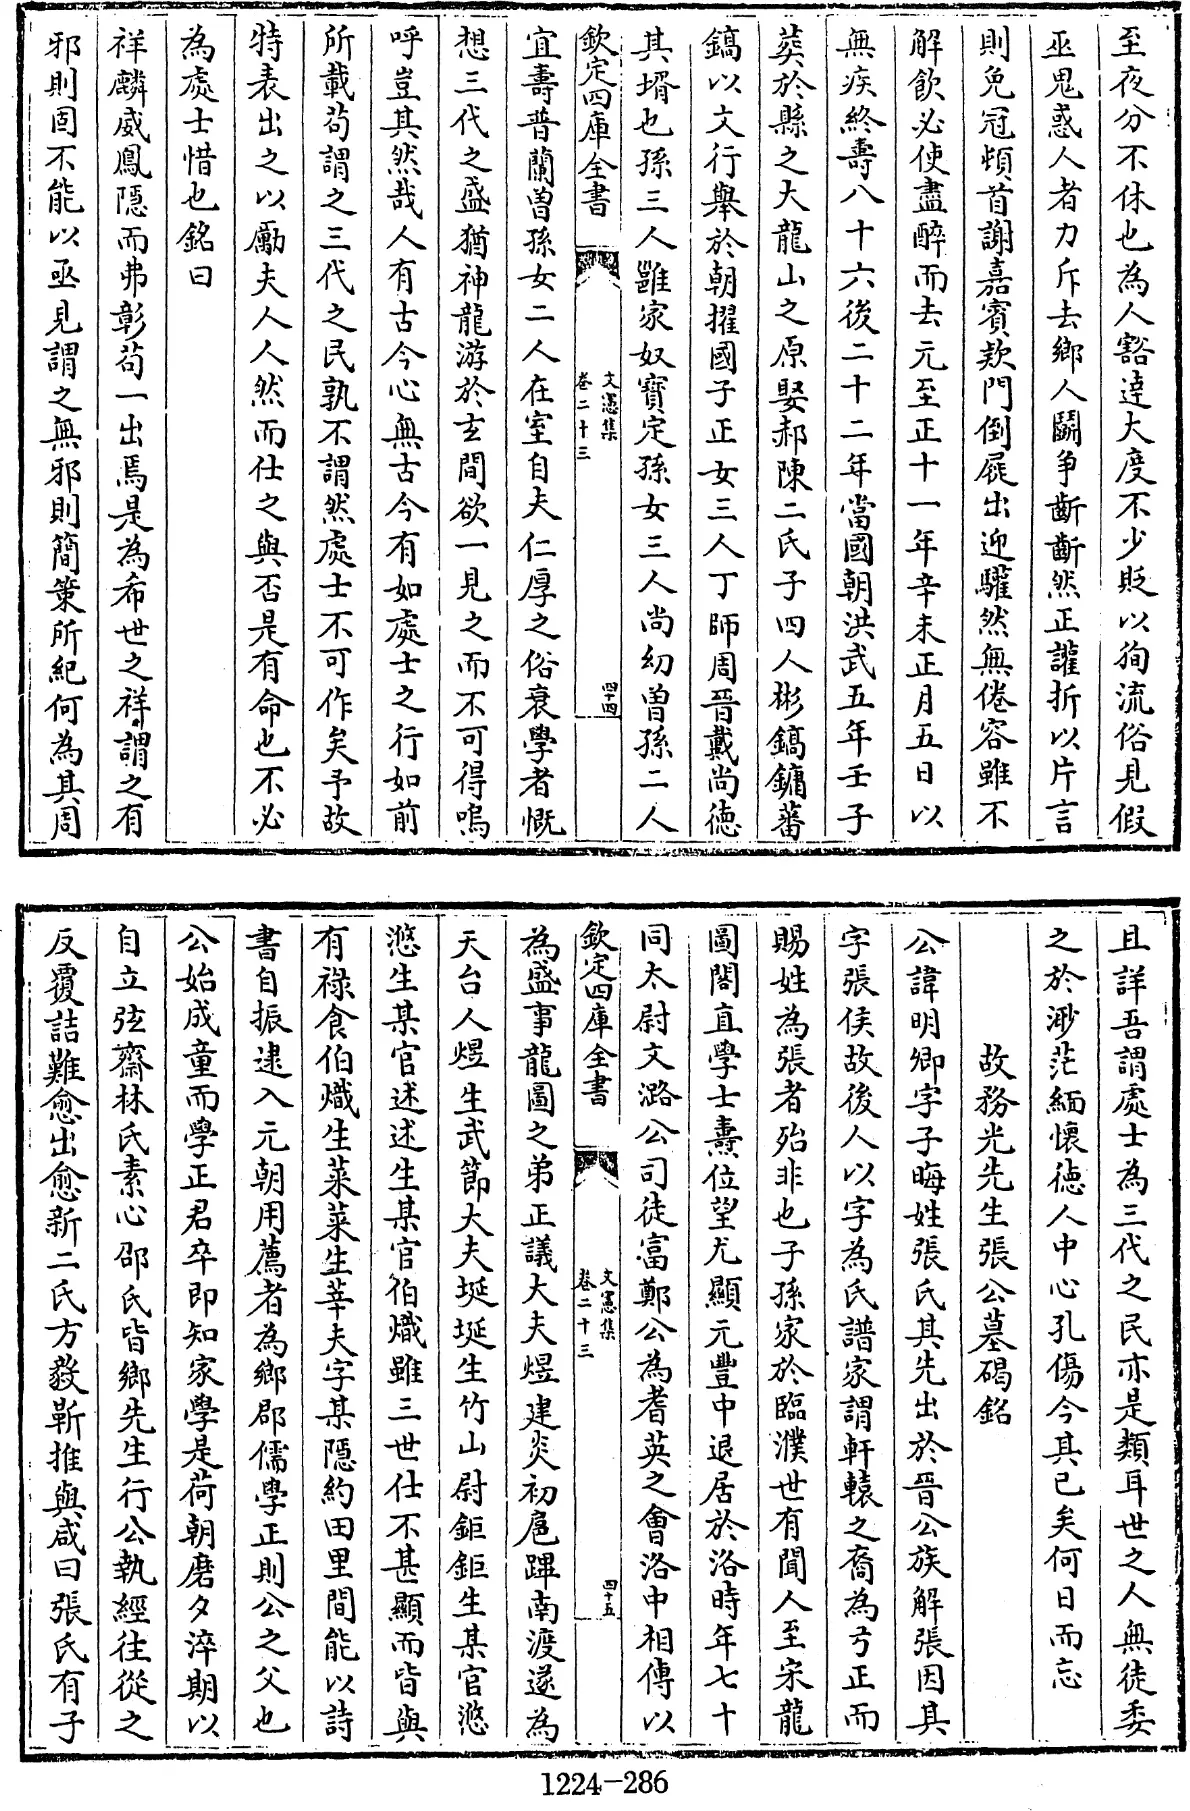 至夜分不休也為人豁達大度不少貶以狥流俗見假
巫鬼惑人者力斥去鄉人鬬争齗齗然正讙折以片言
則免冠頓首謝嘉賓欵門倒屣出迎驩然無倦容雖不
解飲必使盡醉而去元至正十一年辛未正月五日以
無疾終壽八十六後二十二年當國朝洪武五年壬子
葬於縣之大龍山之原娶郝陳二氏子四人彬鎬鏞蕃
鎬以文行舉於朝擢國子正女三人丁師周晉戴尚徳
其壻也孫三人雖家奴寳定孫女三人尚幼曽孫二人
欽定四庫全書
文憲集
卷二十三
四十四
宜壽普蘭曽孫女二人在室自夫仁厚之俗衰學者慨
想三代之盛猶神龍游於玄間欲一見之而不可得嗚
呼豈其然哉人有古今心無古今有如處士之行如前
所載茍謂之三代之民孰不謂然處士不可作矣予故
特表出之以勵夫人人然而仕之與否是有命也不必
為處士惜也銘曰
祥麟威鳳隱而弗彰茍一出焉是為希世之祥謂之有
邪則固不能以亟見謂之無邪則簡䇿所紀何為其周
且詳吾謂處士為三代之民亦是類耳世之人無徒委
之於渺茫緬懷徳人中心孔傷今其已矣何日而忘
故務光先生張公墓碣銘
公諱明卿字子晦姓張氏其先出於晉公族解張因其
字張侯故後人以字為氏譜家謂軒轅之裔為弓正而
賜姓為張者殆非也子孫家於臨濮世有聞人至宋龍
圖閣直學士燾位望尤顯元豐中退居於洛時年七十
同太尉文潞公司徒富鄭公為耆英之會洛中相傳以
欽定四庫全書
文憲集
卷二十三
四十五
為盛事龍圖之弟正議大夫煜建炎初扈蹕南渡遂為
天台人煜生武節大夫埏埏生竹山尉鉅鉅生某官慫
慫生某官述述生某官伯熾雖三世仕不甚顯而皆與
有祿食伯熾生菜菜生莘夫字某隠約田里間能以詩
書自振逮入元朝用薦者為鄉郡儒學正則公之父也
公始成童而學正君卒即知家學是荷朝磨夕淬期以
自立弦齋林氏素心邵氏皆鄉先生行公執經往從之
反覆詰難愈出愈新二氏方毅靳推與咸曰張氏有子
1224-286